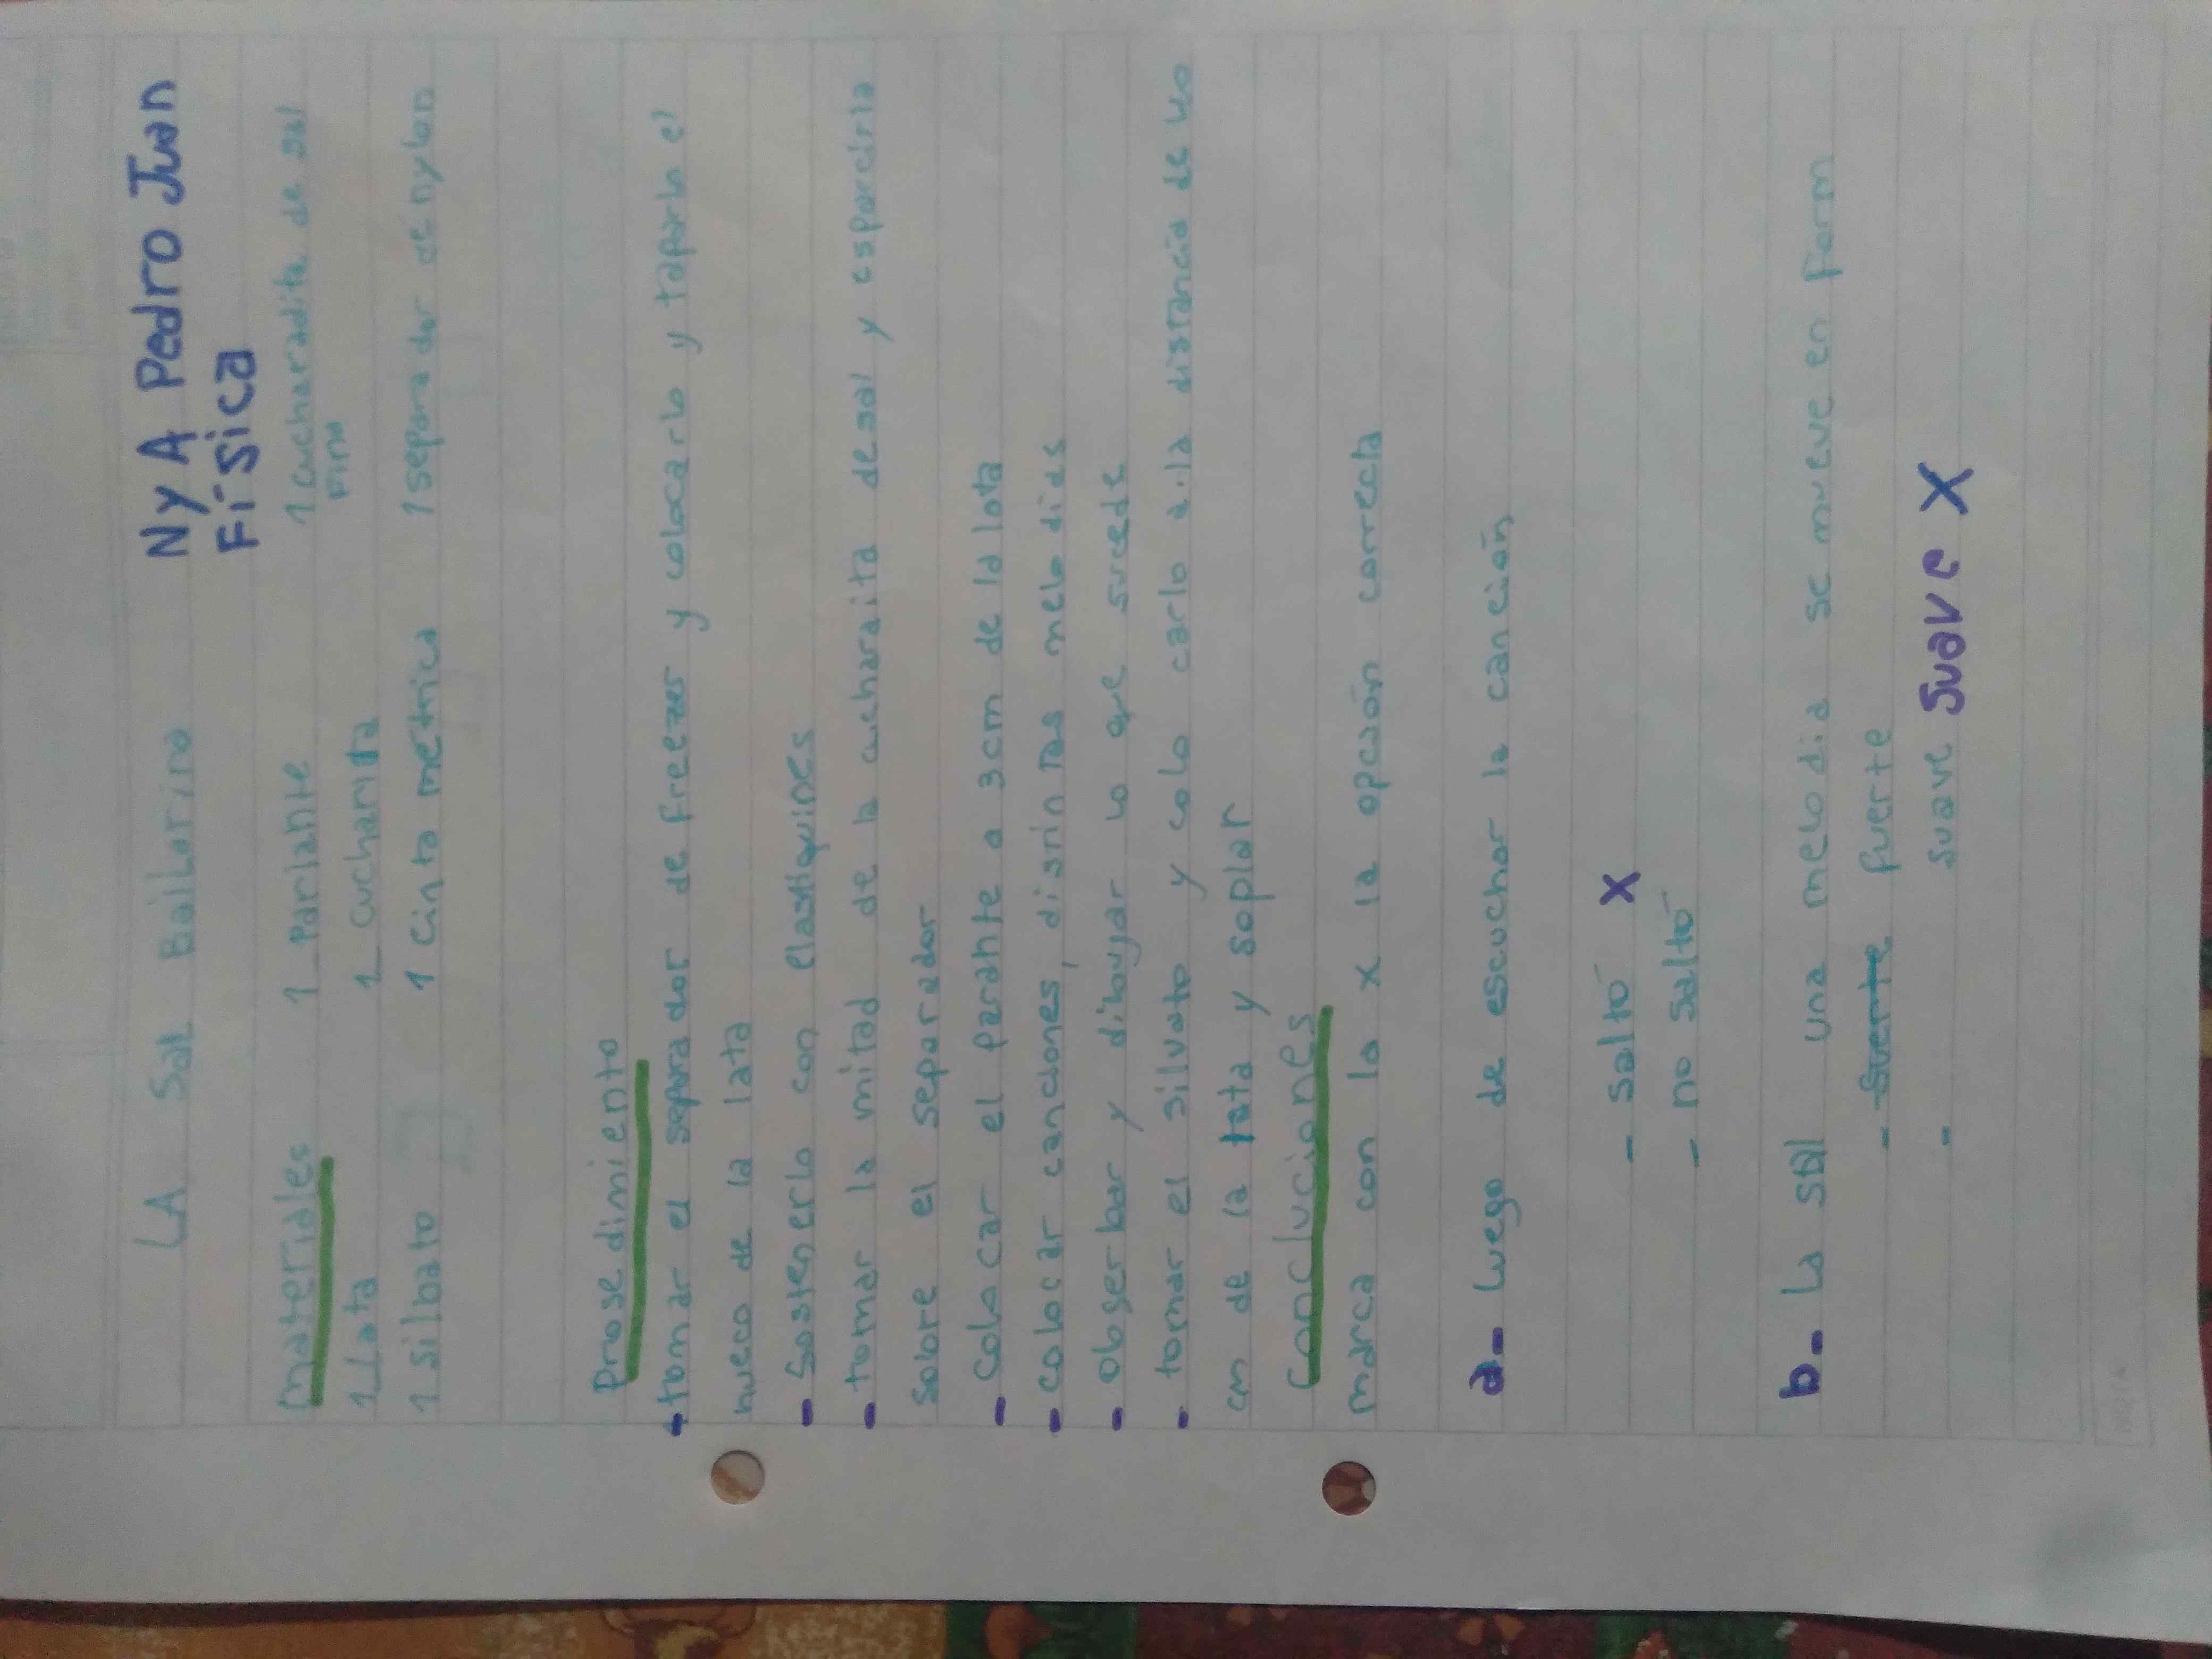 LA Sal Bailarina NyA Pedro Juan
Física
materiales 1 Parlante 1 cucharadita de sal
fina
1 Lata 1 cucharita
1 silbato 1 cinta métrica 1 separador de nylon
Prosedimiento
- tomar el separador de freezer y colocarlo y taparlo el
hueco de la lata
- Sostenerlo con elastiquines
- tomar la mitad de la cucharaita de sal y esparcirla
sobre el separador
- Colo car el parante a 3cm de la lota
- colocar canciones, disrintas melo dias
- obserbar y dibujar lo que sucede
- tomar el silvato y colo carlo a la distancia de
cm de la lata y soplar
Concluciones
marca con la x la opción correcta
a- Luego de escuchar la canción
- saltó X
- no saltó
b- La sal una melodia se mueve en form
- fuerte
- suave suave X